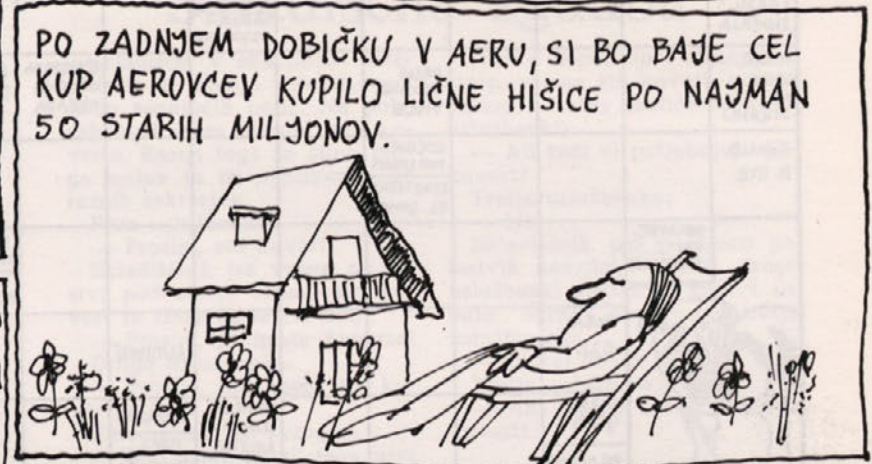 PO ZADNJEM DOBIČKU V AERU, SI BO BAJE CEL
KUP AEROVCEV KUPILO LIČNE HIŠICE PO NAJMAN
50 STARIH MILJONOV.